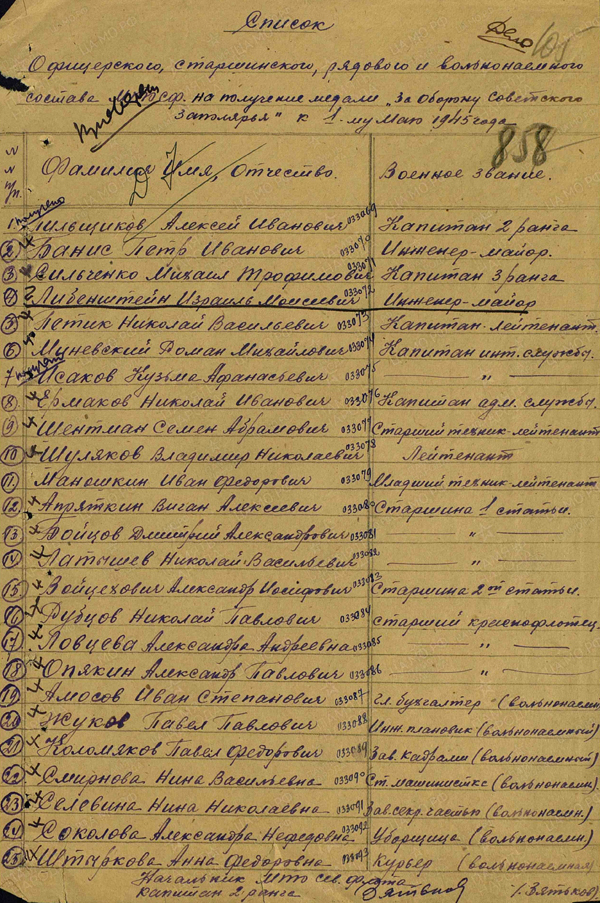 Список
Дело 105
Офицерского, старшинского, рядового и вольнонаемного
состава на получение медали „За Оборону Советского
Заполярья" к 1-му Маю 1945 года
858
N N пп. Фамилия Имя, Отчество. Военное звание.
1. Пильщиков Алексей Иванович 033069 Капитан 2 ранга
2 Банис Петр Иванович 033070 Инженер-майор.
3 Сильченко Михаил Трофимович 033071 Капитан 3 ранга
4 Либенштейн Израиль Моисеевич 033072 Инженер-майор
5 Петик Николай Васильевич 033073 Капитан-лейтенант.
6 Муневский Роман Михайлович 033074 Капитан инт. службы.
7 Исаков Кузьма Афанасьевич 033075 — " —
8 Ермаков Николай Иванович 033076 Капитан адм. службы.
9 Шентман Семен Абрамович 033077 Старший техник-лейтенант
10 Шуляков Владимир Николаевич 033078 Лейтенант
11 Маношкин Иван Федорович 033079 Младший техник-лейтенант
12 Апряткин Виган Алексеевич 033080 Старшина 1 статьи.
13 Бойцов Дмитрий Александрович 033081 — " —
14 Латышев Николай Васильевич 033082 — " —
15 Войцехович Александр Иосифович 033083 Старшина 2ой статьи.
16 Рубцов Николай Павлович 033084 старший краснофлотец.
17 Ловцева Александра Андреевна 033085 — " —
18 Опякин Александр Павлович 033086 — " —
19 Амосов Иван Степанович 033087 гл. бухгалтер (вольнонаемн.
20 Жуков Павел Павлович 033088 Инж. плановик (вольнонаемный)
21 Коломяков Павел Федорович 033089 Зав. кадрами (вольнонаемный)
22 Смирнова Нина Васильевна 033090 Ст. машинистка (вольнонаемн.)
23 Селевина Нина Николаевна 033091 Зав. секр. частью (вольнонаемн.)
24 Соколова Александра Нефедовна 033092 Уборщица (вольнонаемн.)
25 Штыркова Анна Федоровна 033093 Курьер (вольнонаемная)
Начальник МТО Сев. флота
капитан 2 ранга (Зятьков)